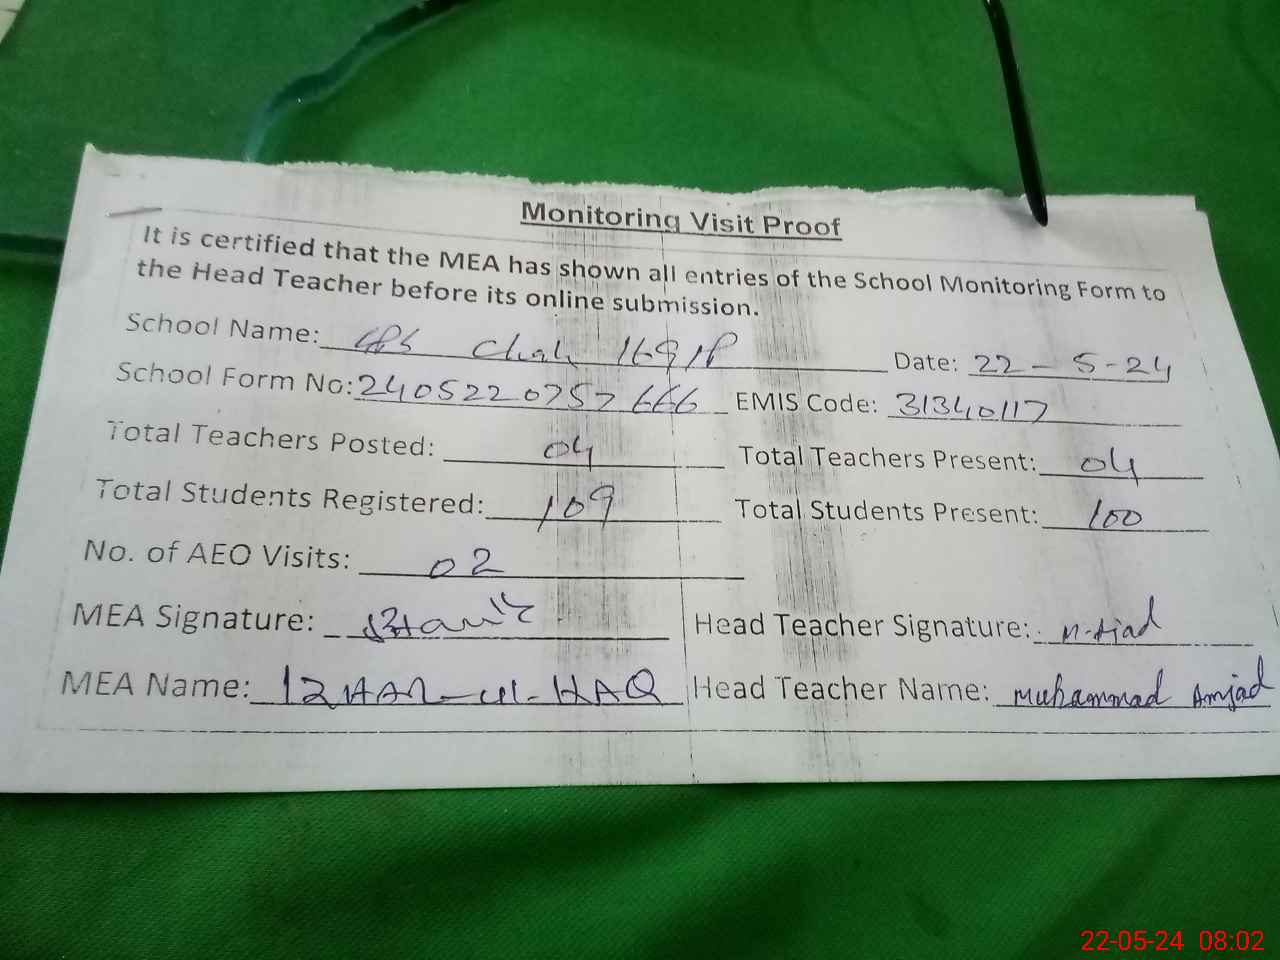 Monitoring Visit Proof
It is certified that the MEA has shown all entries of the School Monitoring Form to
the Head Teacher before its online submission.
School Name: GPS Chak 169/P Date: 22-5-24
School Form No: 2405220757666 EMIS Code: 31340117
Total Teachers Posted: 04 Total Teachers Present: 04
Total Students Registered: 109 Total Students Present: 100
No. of AEO Visits: 02
MEA Signature: Head Teacher Signature:
MEA Name: IZHAR-ul-HAQ Head Teacher Name: Muhammad Amjad
22-05-24 08:02